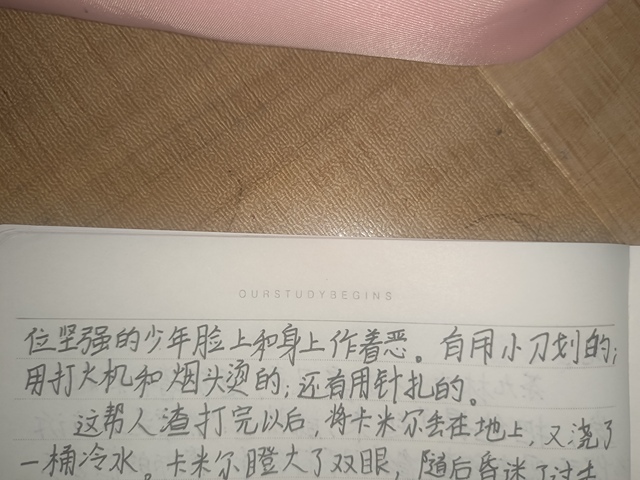 OURSTUDYBEGINS
位坚强的少年脸上和身上作着恶。有用小刀划的;
用打火机和烟头烫的;还有用针扎的。
这帮人渣打完以后,将卡米尔丢在地上,又浇了
一桶冷水。卡米尔瞪大了双眼,随后昏迷了过去